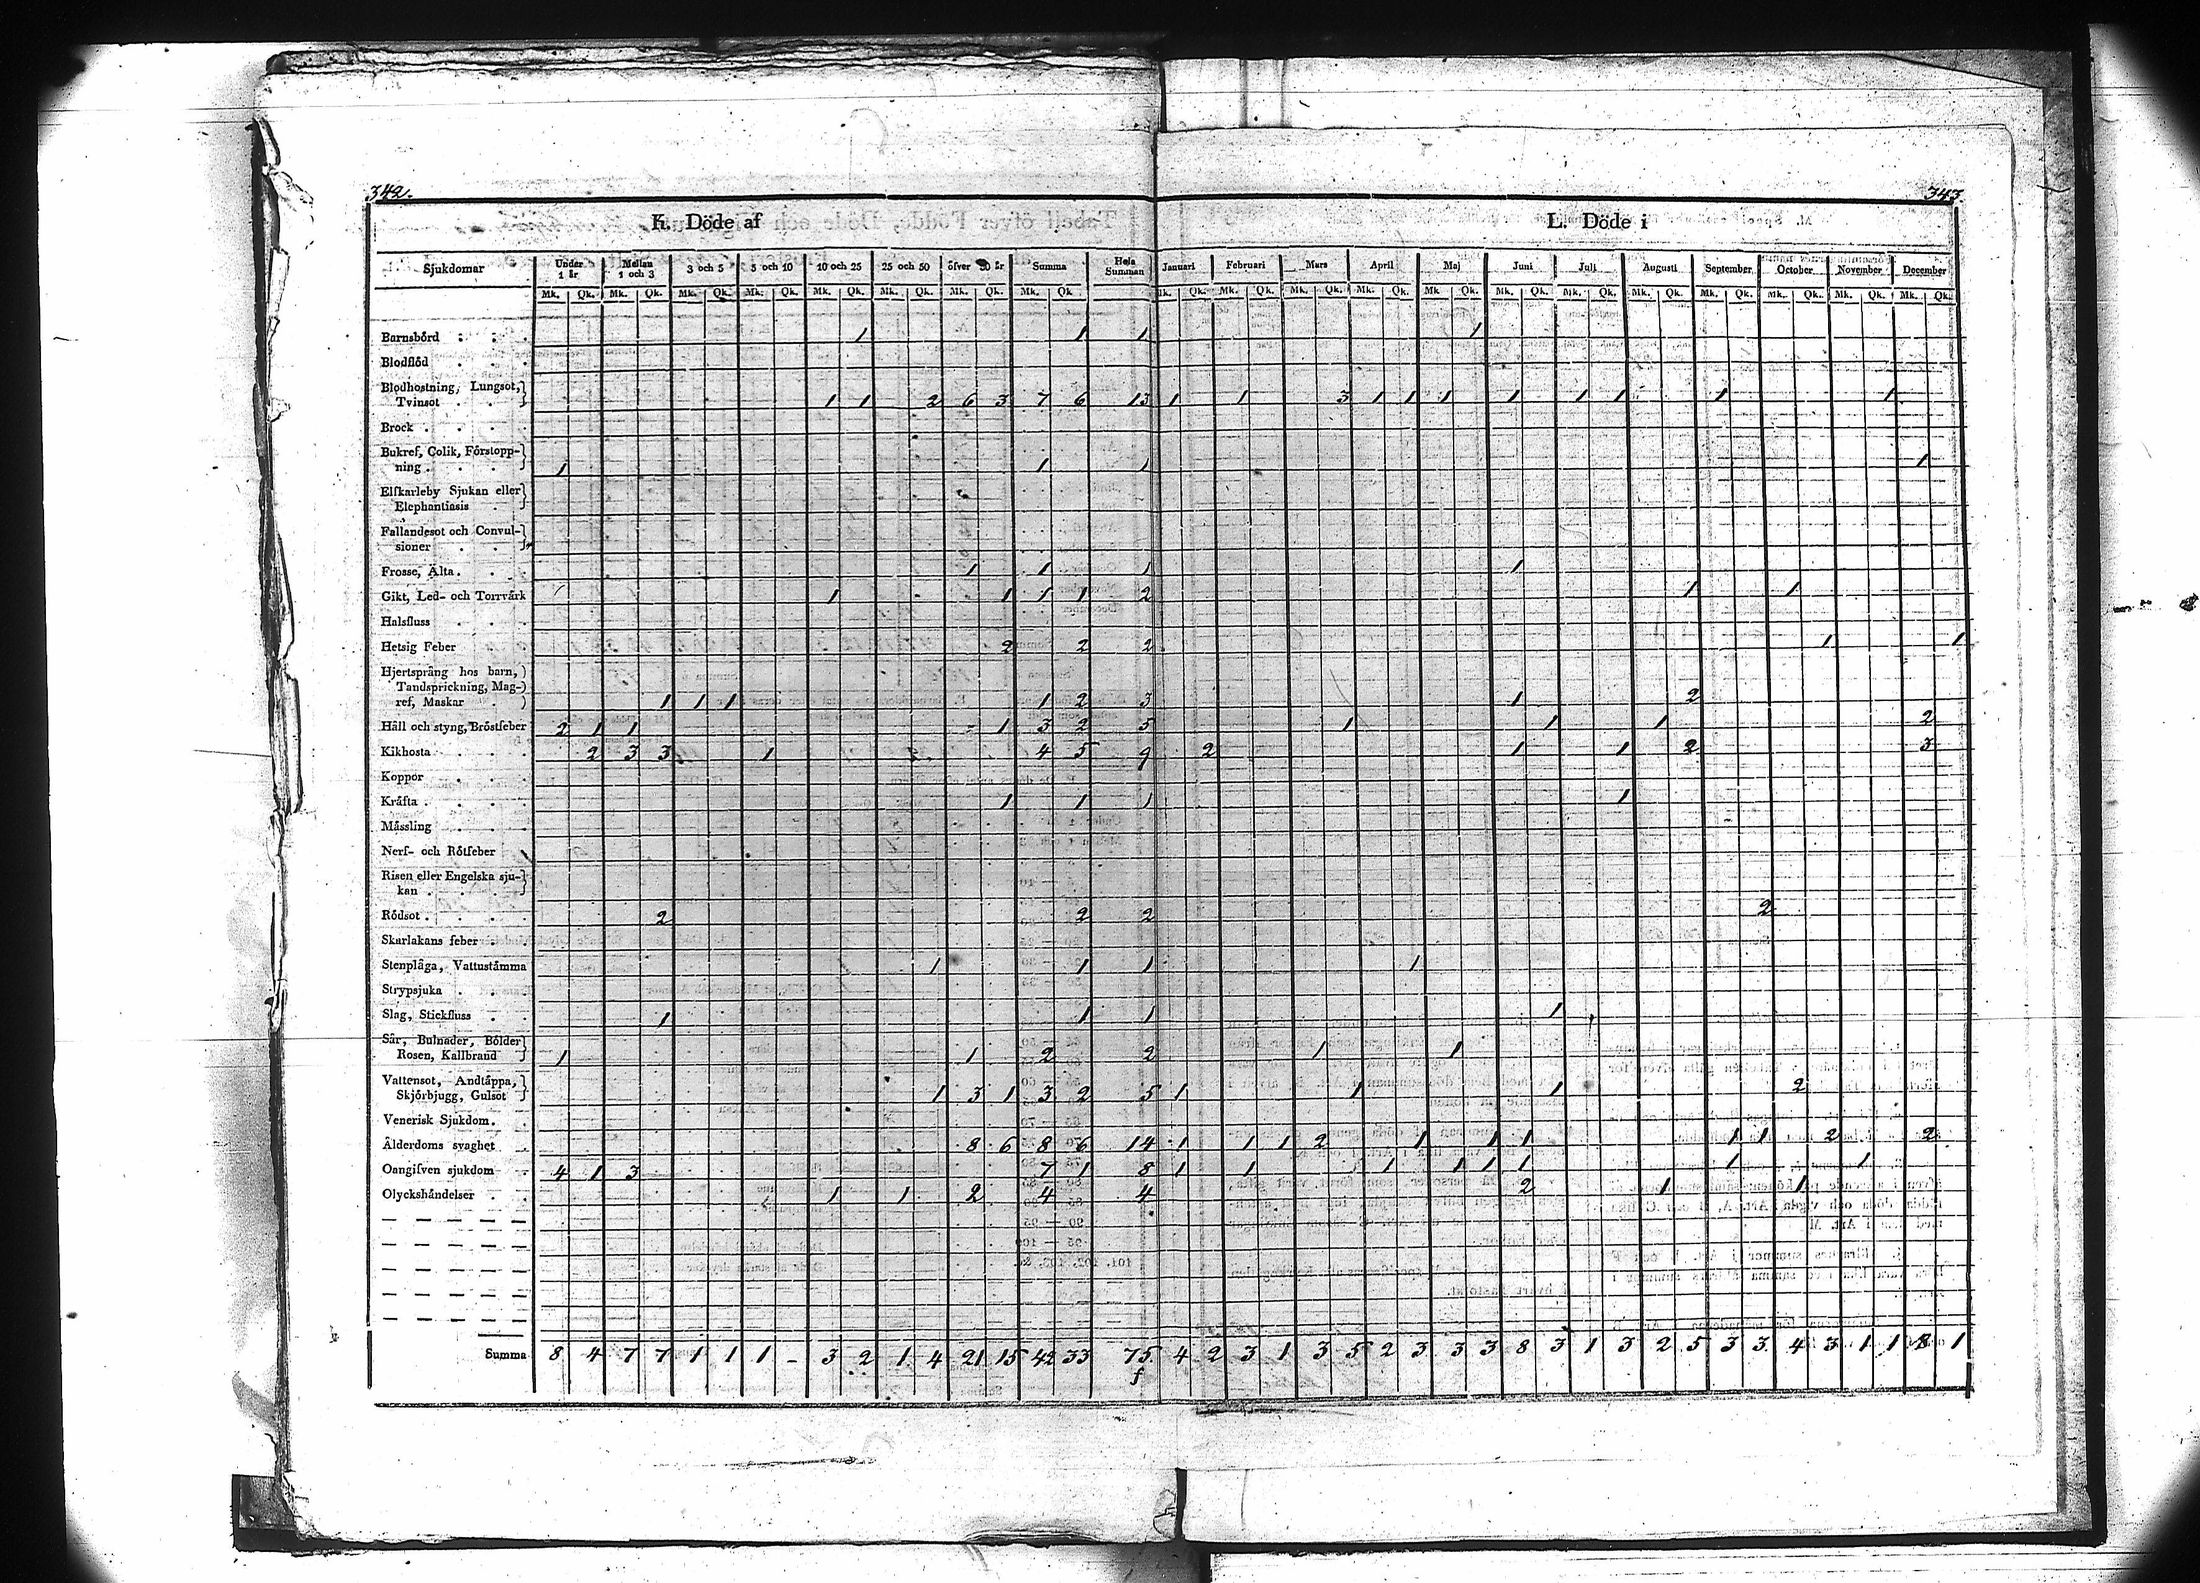 342. 343.
K. Döde af L. Döde i
Sjukdomar Under 1 år Mellan 1 och 3 3 och 5 5 och 10 10 och 25 25 och 50 öfver 50 år Summa Hela Summan Januari Februari Mars April Maj Juni Juli Augusti September October November December
Mk. Qk. Mk. Qk. Mk. Qk. Mk. Qk. Mk. Qk. Mk. Qk. Mk. Qk. Mk. Qk. Mk. Qk. Mk. Qk. Mk. Qk. Mk. Qk. Mk Qk. Mk. Qk. Mk. Qk. Mk. Qk. Mk. Qk. Mk. Qk. Mk. Qk. Mk. Qk.
Barnsbörd 1 1 1 1
Blodflöd
Blodhostning, Lungsot,
Tvinsot 1 1 2 6 3 7 6 13 1 1 3 1 1 1 1 1 1 1 1
Brock
Bukref, Colik, Förstopp-
ning 1 1 1 1
Elfkarleby Sjukan eller
Elephantiasis
Fallandesot och Convul-
sioner
Frosse, Älta 1 1 1 1
Gikt, Led- och Torrvärk 1 1 1 1 2 1 1
Halsfluss
Hetsig Feber 2 2 2 1 1
Hjertsprång hos barn,
Tandsprickning, Mag-
ref, Maskar 1 1 1 1 2 3 1 2
Håll och styng, Bröstfeber 2 1 1 1 3 2 5 1 1 1 2
Kikhosta 2 3 3 1 4 5 9 2 1 1 2 3
Koppor
Kräfta 1 1 1 1
Mässling
Nerf- och Rötfeber
Risen eller Engelska sju-
kan
Rödsot 2 2 2 2
Skarlakans feber
Stenplåga, Vattustämma 1 1 1 1
Strypsjuka
Slag, Stickfluss 1 1 1 1
Sår, Bulnader, Bölder
Rosen, Kallbrand 1 1 2 2 1 1
Vattensot, Andtäppa,
Skjörbjugg, Gulsot 1 3 1 3 2 5 1 1 1 2
Venerisk Sjukdom.
Ålderdoms svaghet 8 6 8 6 14 1 1 1 2 1 1 1 1 1 2 2
Oangifven sjukdom 4 1 3 7 1 8 1 1 1 1 1 1 1 1
Olyckshändelser 1 1 2 4 4 2 1 1
Summa 8 4 7 7 1 1 1 - 3 2 1 4 21 15 42 33 75 4 2 3 1 3 5 2 3 3 3 8 3 1 3 2 5 3 3 4 3 1 1 8 1